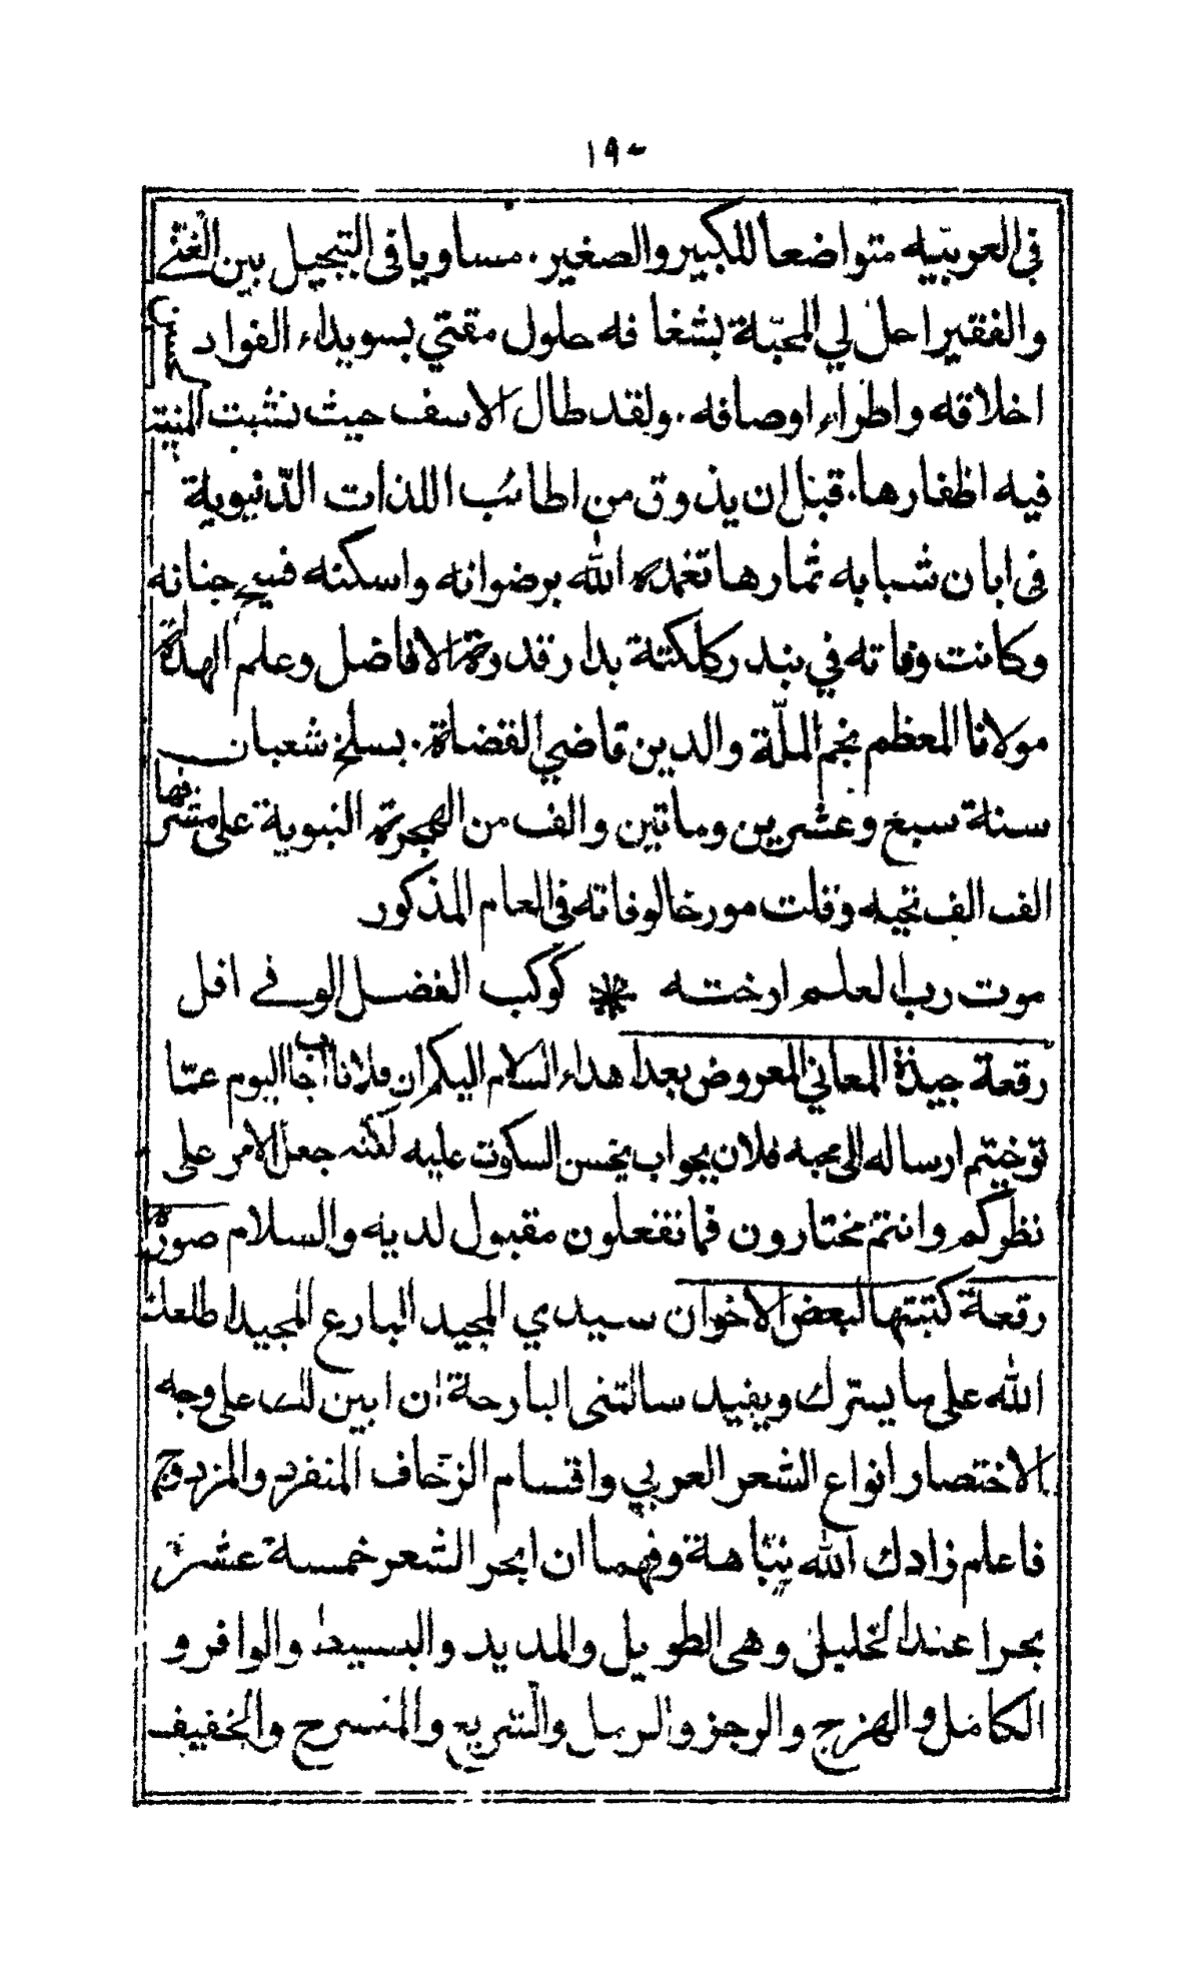 ١٩٠
في العربيّه متواضعاً للكبير والصغير. مساويا في التبجيل بين الغني
والفقير احل لي المحبّة بشغا فه حلول مقتي بسويداء الفواد لحسن
اخلاقه واطراء اوصافه. ولقد طال الاسف حيث نشبت المنية
فيه اظفارها. قبل ان يذوق من اطائب اللذات الدّنيوية
في ابان شبابه ثمارها تغمده الله برضوانه واسكنه فسيح جنانه
وكانت وفاته في بندر كلكتة بدار قدوة الافاضل وعلم الهداة
مولانا المعظم نجم الملّة والدين قاضي القضاة. بسلخ شعبان
سنة سبع وعشرين وماتين والف من الهجرة النبوية على مشرفها
الف الف تحيه وقلت مورخا لوفاته في العام المذكور
موت رب العلم ارخته * كوكب الفضل الوفي افل
رقعة جيدة المعاني المعروض بعد اهداء السلام اليكم ان فلانا اجاب اليوم عمّا
توخيتم ارساله الى محبه فلان بجواب يحسن السكوت عليه لكنه جعل الامر على
نظركم وانتم مختارون فما تفعلون مقبول لديه والسلام صورة
رقعة كتبتها لبعض الاخوان سيدي المجيد البارع المجيد اطلعك
الله على ما يسرك ويفيد سالتني البارحة ان ابين لك على وجه
الاختصار انواع الشعر العربي واقسام الزحاف المنفرد والمزدوج
فاعلم زادك الله نباهة وفهما ان ابحر الشعر خمسة عشر
بحرا عند الخليل وهي الطويل والمديد والبسيط والوافر و
الكامل والهزج والرجز والرمل والسّريع والمنسرح والخفيف